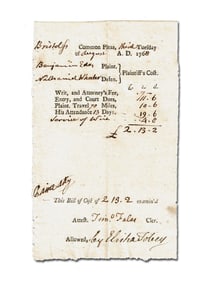 Bristol ss Common Pleas, third Tuesday
of August A. D. 1768
Benjamin Plaint.
Nathaniel Defen. Plaintiff's Cost.
Writ, and Attorney's Fee,
Entry, and Court Dues,
Plaint. Travel Miles,
His Attendance 13 Days, 19 . 6
Service of Writ
£ 2 . 13 . 2
This Bill of Cost of 2 . 13 . 2 examin'd
Attest. Timo. Fales Cler.
Allowed, by Elisha Tobey